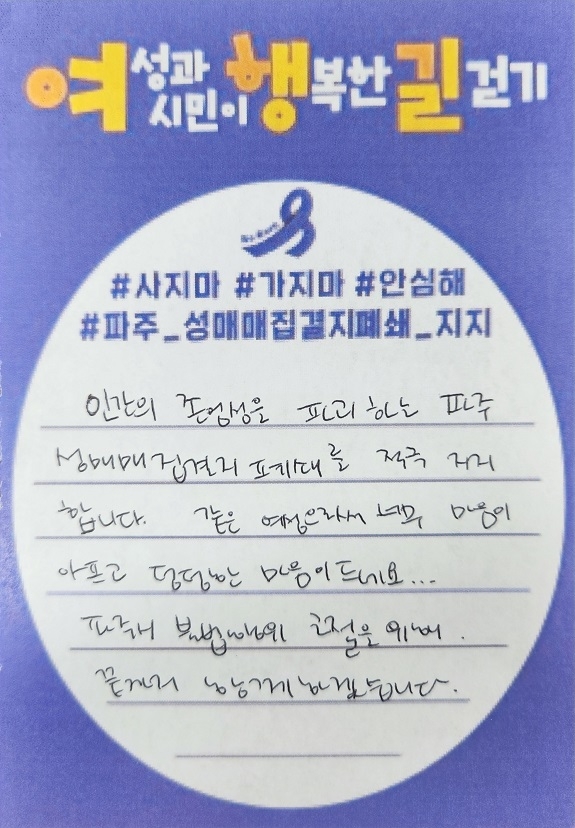 여성과 시민이 행복한 길 걷기
#사지마 #가지마 #안심해
#파주_성매매집결지폐쇄_지지
인간의 존엄성을 파괴하는 파주
성매매집결지 를 적극 지지
합니다. 같은 여성으로서 너무 마음이
아프고 답답한 마음이 드네요...
파주시 불법 근절을 위해.
끝까지 함께하겠습니다.